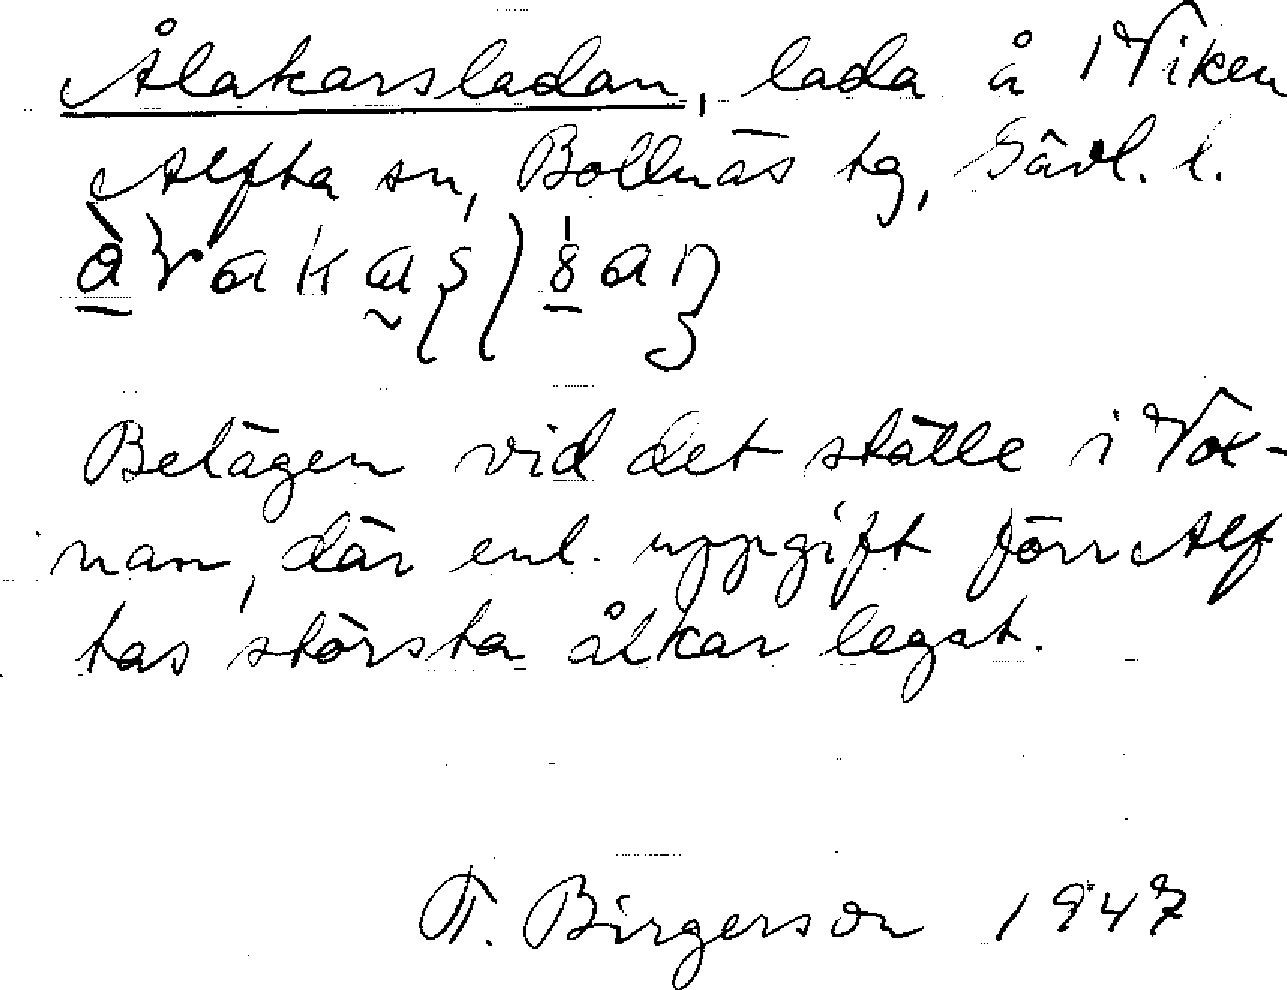 Ålakarsladan, lada å Viken
Alfta sn, Bollnäs tg, Gävl. l.
Belägen vid det ställe i Vox-
nan, där enl. uppgift förr Alf
tas största ålkar legat.
F. Birgerson 1947